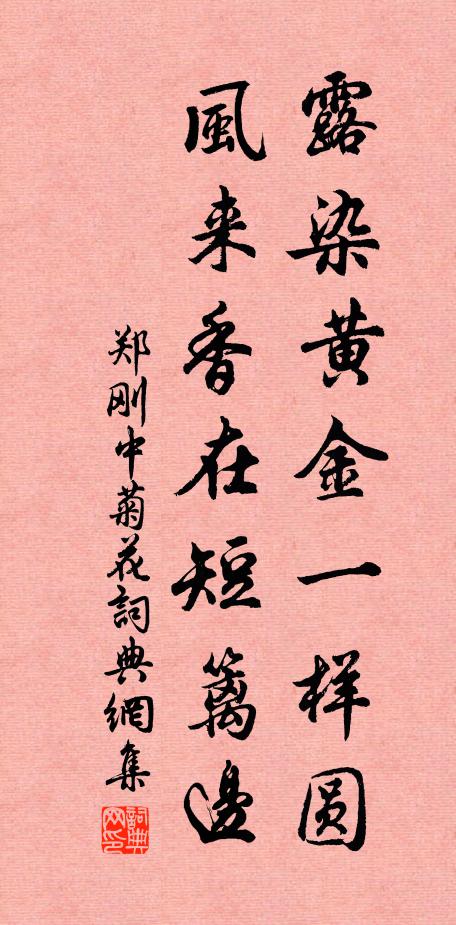 露染黄金一样圆
風来香在短篱邊
郑刚中菊花詞典網集
詞典网印